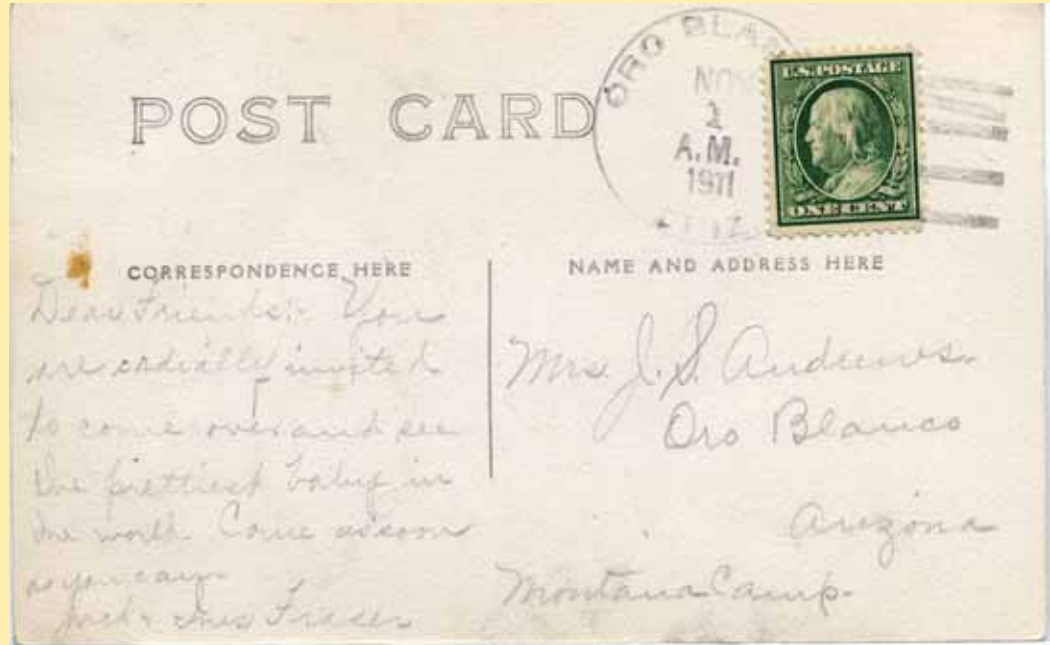 POST CARD
ORO BLAN
NOV
2
A.M.
1911
ARIZ.
U.S. POSTAGE
ONE CENT
CORRESPONDENCE HERE
NAME AND ADDRESS HERE
Dear Friends:- You
are cadially invited
to come over and see
the prettiest baby in
the world. Come as soon
as you can.
Jack & Fraser
Mrs. J. S. Andrews.
Oro Blanco
Arizona
Montana Camp.